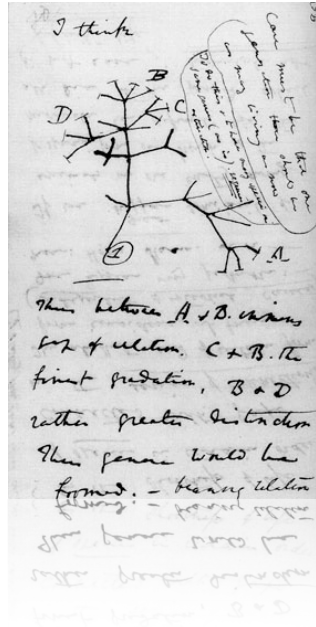 I think
Case must be that one
generation then should be
as many living as now
To do this & to have many species in
same genus (as is). requires
extinction.
B
D
C
A
1
Thus between A & B. immens
gap of relation. C & B. the
finest gradation, B & D
rather greater distinction
Thus genera would be
formed. — bearing relation